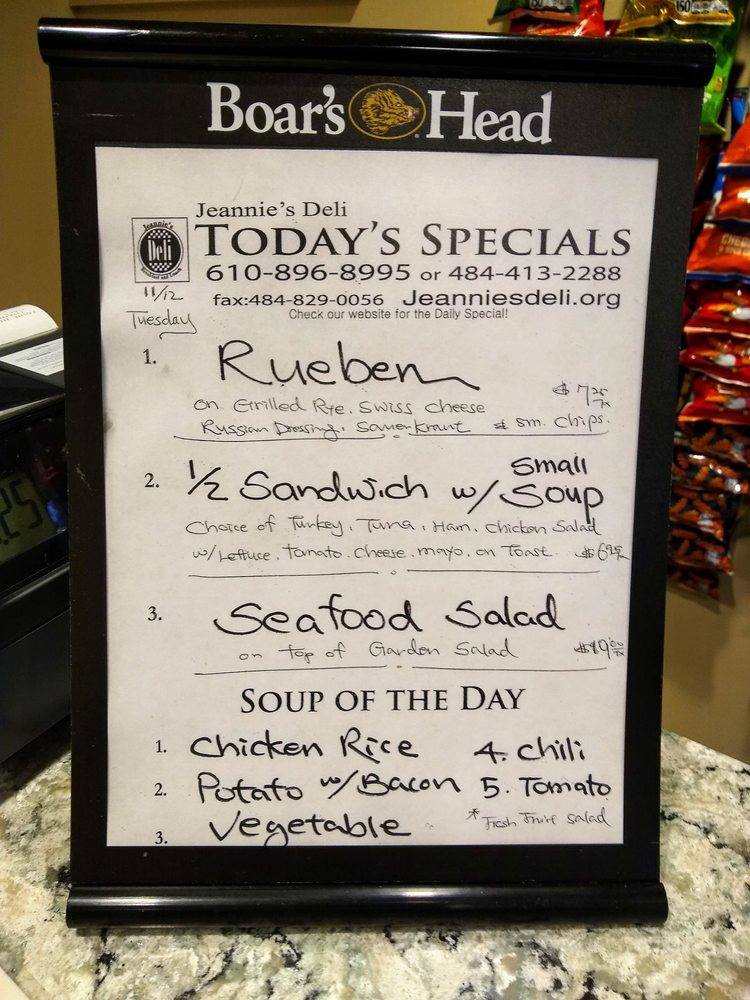 Boar's Head
Jeannie's Deli
Jeannie's
Deli
TODAY'S SPECIALS
610-896-8995 or 484-413-2288
fax:484-829-0056 Jeanniesdeli.org
Check our website for the Daily Special!
11/12
Tuesday
1. Rueben
on Grilled Rye. Swiss cheese $7.25
Russian Dressing. Sauerkraut & sm. chips.
2. 1/2 Sandwich w/ Small Soup
Choice of Turkey, Tuna, Ham, Chicken Salad
w/ Lettuce. tomato. cheese. mayo. on Toast.
3. Seafood Salad
on top of Garden Salad
SOUP OF THE DAY
1. Chicken Rice 4. Chili
2. Potato w/ Bacon 5. Tomato
3. Vegetable * Fresh Fruit Salad
25